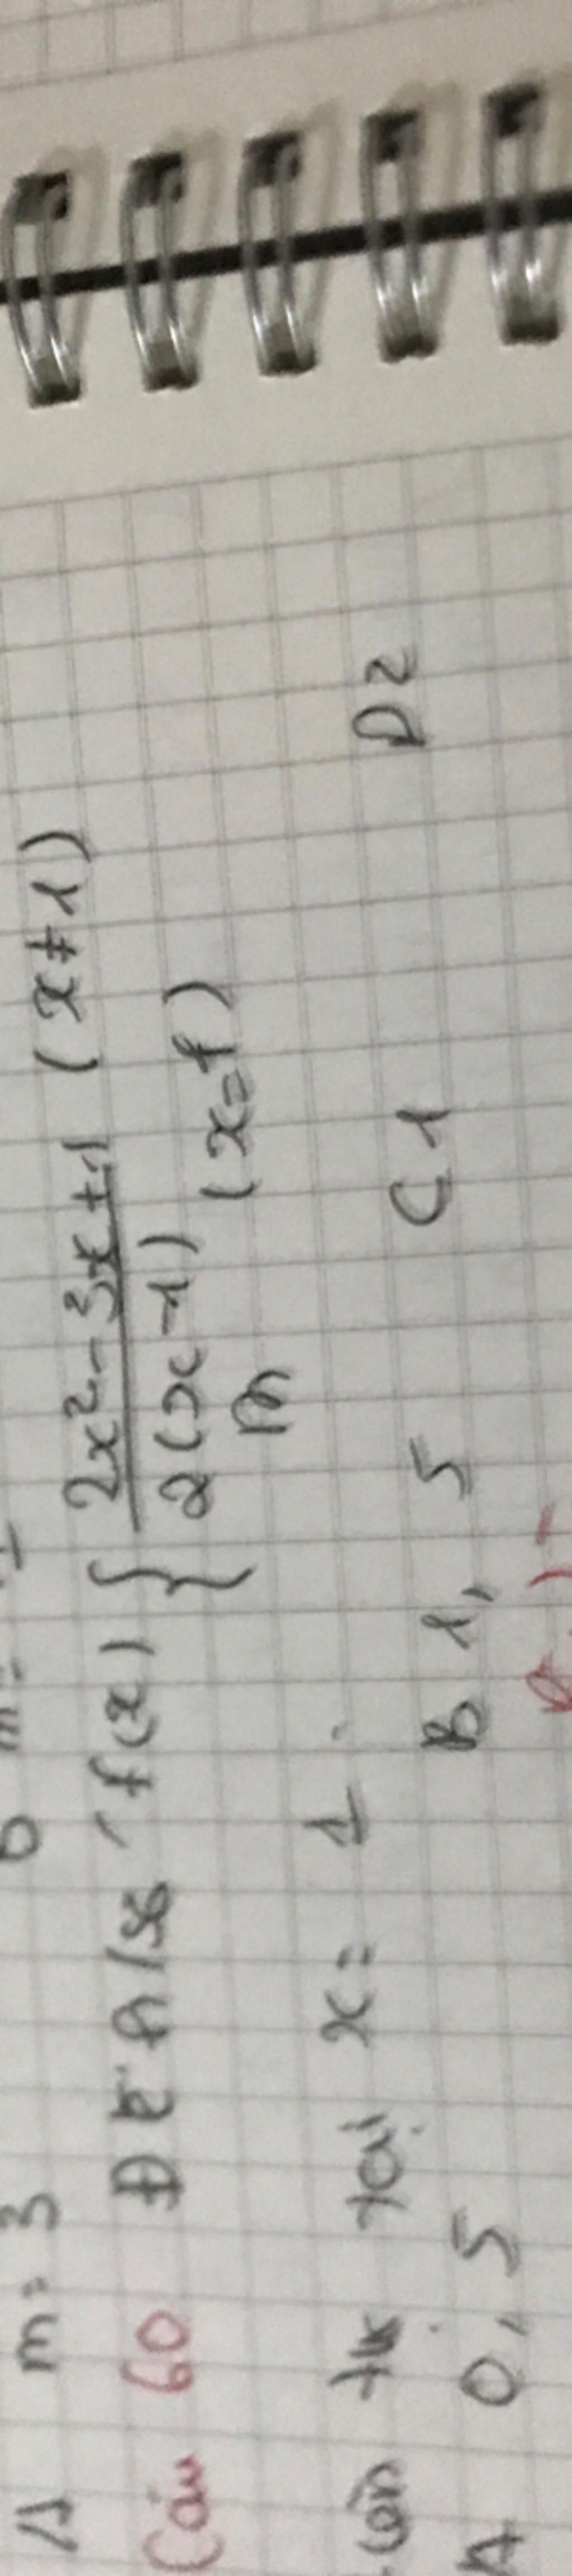 A m = 3 b m =
Câu 60 Để h/số f(x) { 2x² - 3x + 1 / 2(x - 1) (x ≠ 1)
m (x = 1)
liên tục tại x = 1.
A 0,5 B 1,5 C 1 D 2